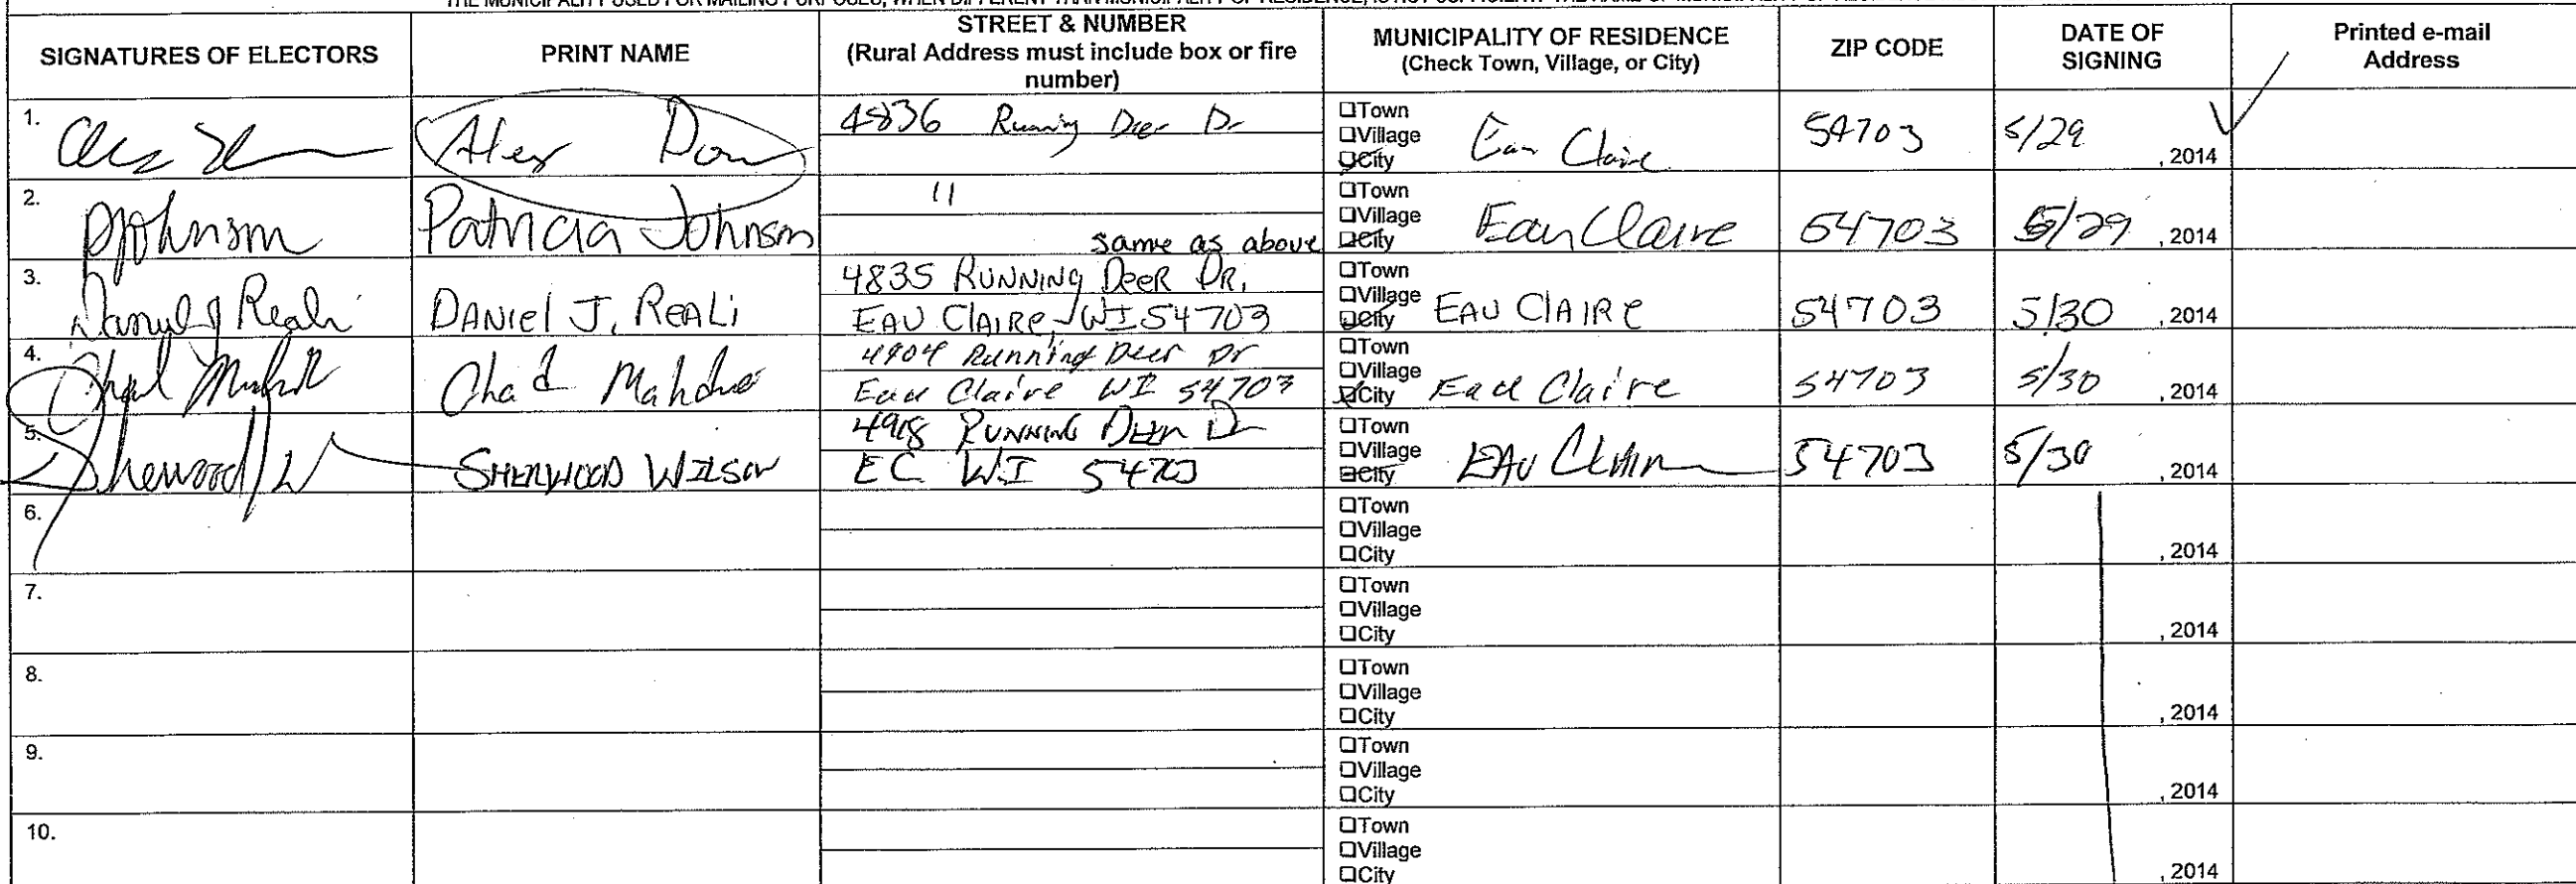 SIGNATURES OF ELECTORS PRINT NAME STREET & NUMBER (Rural Address must include box or fire number) MUNICIPALITY OF RESIDENCE (Check Town, Village, or City) ZIP CODE DATE OF SIGNING Printed e-mail Address
1. 4836 Running Deer Dr □Town □Village □City Eau Claire 54703 5/29 , 2014
2. PJohnson Patricia Johnson 11 same as above □Town □Village □City Eau Claire 54703 5/29 , 2014
3. Daniel J Reali DANIEL J. REALI 4835 RUNNING DEER DR. EAU CLAIRE, WI 54703 □Town □Village □City EAU CLAIRE 54703 5/30 , 2014
4. Chad 4904 Running Deer Dr Eau Claire WI 54703 □Town □Village □City Eau Claire 54703 5/30 , 2014
5. Sherwood W SHERWOOD WILSON 4918 RUNNING DEER Dr EC WI 54703 □Town □Village □City EAU Claire 54703 5/30 , 2014
6. □Town □Village □City , 2014
7. □Town □Village □City , 2014
8. □Town □Village □City , 2014
9. □Town □Village □City , 2014
10. □Town □Village □City , 2014